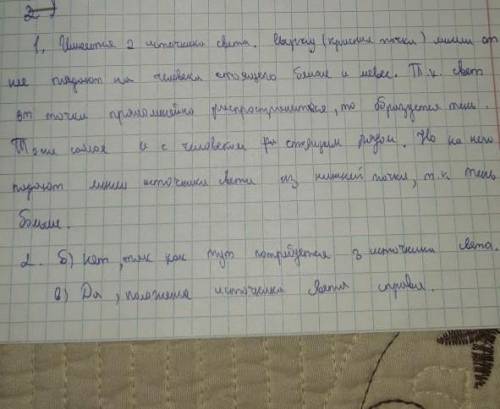 2
1. Имеется 2 источника света. Сверху (красная точка) линии от
нее падают на человека стоящего ближе и левее. Т.к. свет
от точки прямолинейно распространяется, то образуется тень.
Тоже самое и с человеком стоящим рядом. Но на него
падают линии источника света из нижней точки, т.к тень
больше.
2. б) Нет, так как тут потребуется 3 источника света.
в) Да, положение источника света справа.